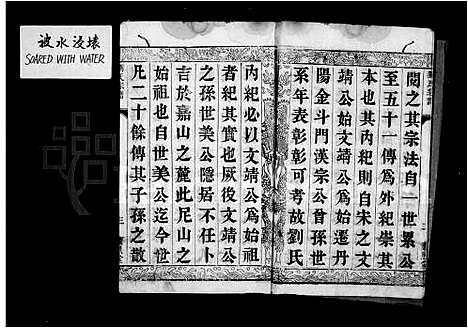 被水浸壊
SOARED WITH WATER
閱之其宗法自一世累公
至五十一傳爲外紀崇其
本也其内紀則自宋之文
靖公始文靖公爲始遷丹
陽金斗門漢宗公首孫世
系年表彰彰可考故劉氏
内紀必以文靖公爲始祖
者紀其實也厥後文靖公
之孫世美公隱居不仕卜
吉於嘉山之麓此尼山之
凡二十餘傳其子孫之散